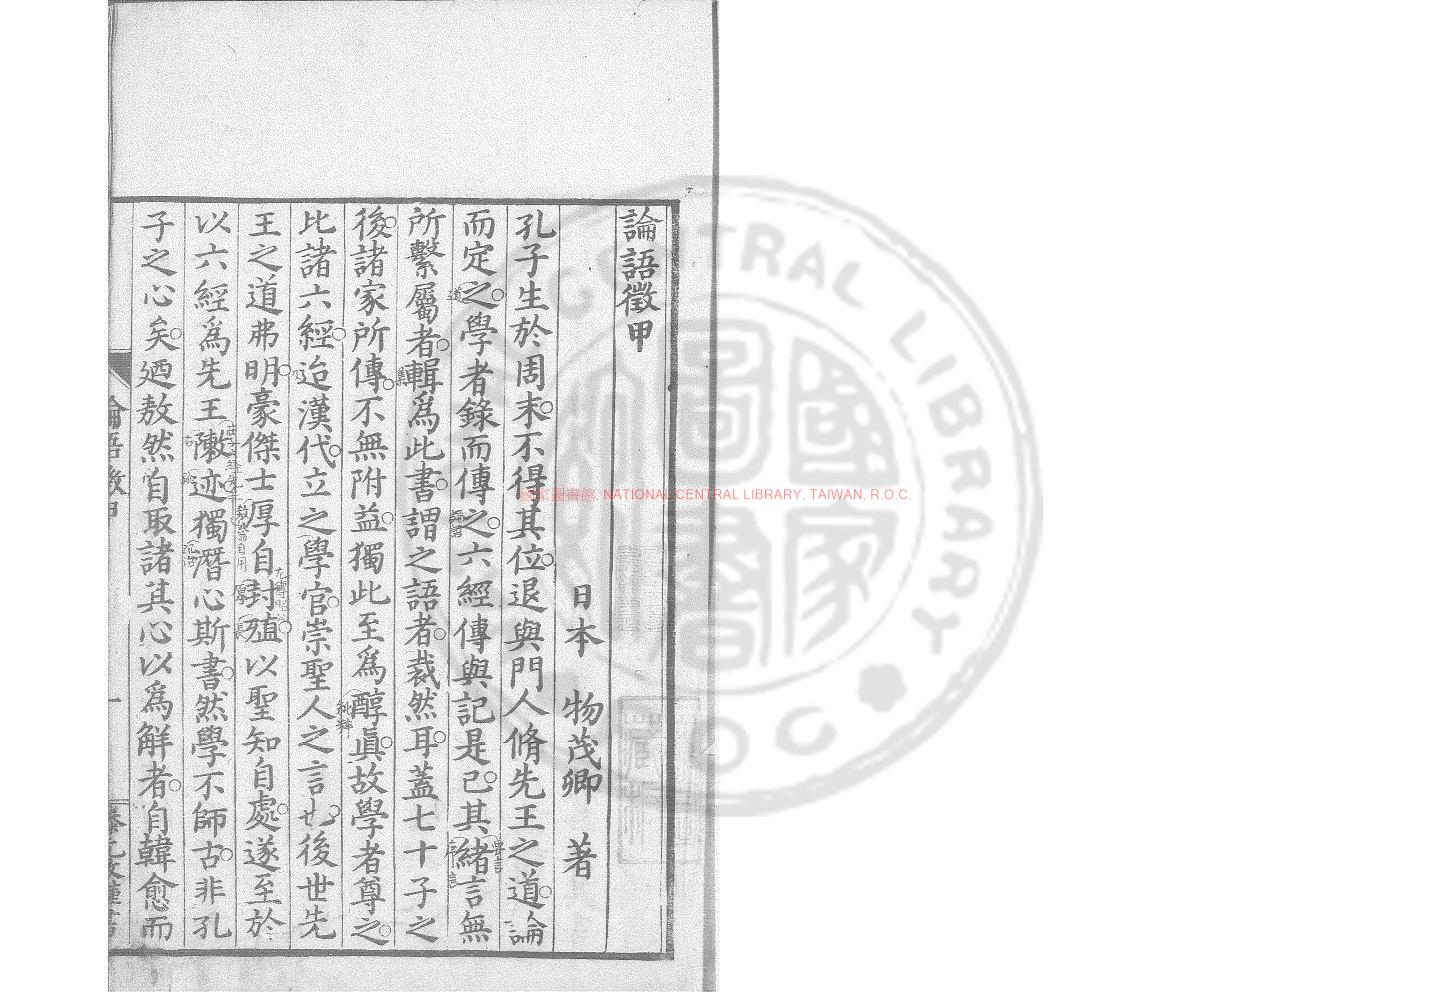 論語徵甲
日本 物茂卿 著
孔子生於周末不得其位退與門人脩先王之道論
而定之學者錄而傳之六經傳與記是已其緒言無
所繫屬者輯爲此書謂之語者裁然耳蓋七十子之
後諸家所傳不無附益獨此至爲醇眞故學者尊之
比諸六經迨漢代立之學官崇聖人之言也後世先
王之道弗明豪傑士厚自封殖以聖知自處遂至於
以六經爲先王陳迹獨潛心斯書然學不師古非孔
子之心矣廼敖然自取諸其心以爲解者自韓愈而
論語徵甲
一
國家圖書館, NATIONAL CENTRAL LIBRARY, TAIWAN, R.O.C.
CENTRAL LIBRARY
R.O.C.
國家圖書館